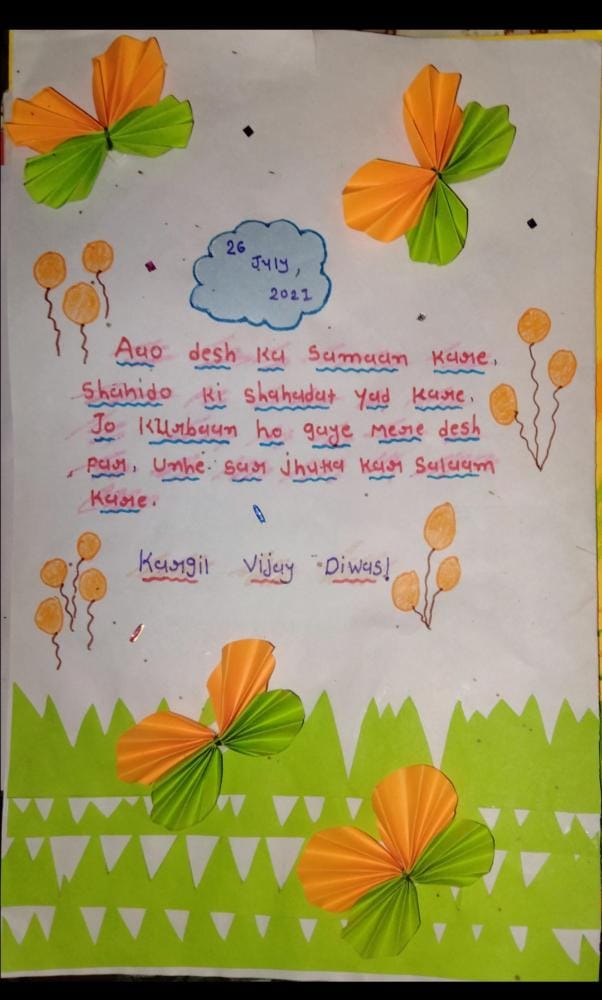 26
July,
2021
Aao desh ka Samaan kare.
Shahido ki shahadat yad kare.
Jo Kurbaan ho gaye mere desh
par, Unhe sar jhuka kar Salaam
kare.
Kargil Vijay Diwas!